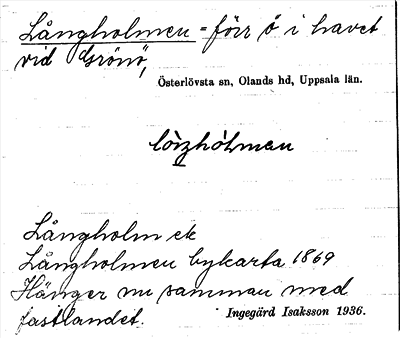 Långholmen = förr ö i havet
vid Grönö,
Österlövsta sn, Olands hd, Uppsala län.
Långholm ek
Långholmen bykarta 1869
Hänger nu samman med
fastlandet.
Ingegärd Isaksson 1936.